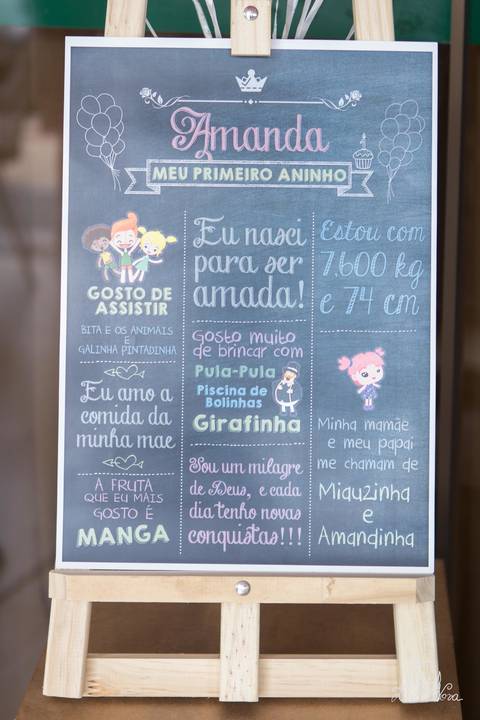 Amanda
MEU PRIMEIRO ANINHO
GOSTO DE
ASSISTIR
BITA E OS ANIMAIS
E
GALINHA PINTADINHA
Eu amo a
comida da
minha mae
A FRUTA
QUE EU MAIS
GOSTO É
MANGA
Eu nasci
para ser
amada!
Gosto muito
de brincar com
Pula-Pula
Piscina de
Bolinhas
Girafinha
Sou um milagre
de Deus, e cada
dia tenho novas
conquistas!!!
Estou com
7.600 kg
e 74 cm
Minha mamãe
e meu papai
me chamam de
Miauzinha
e
Amandinha